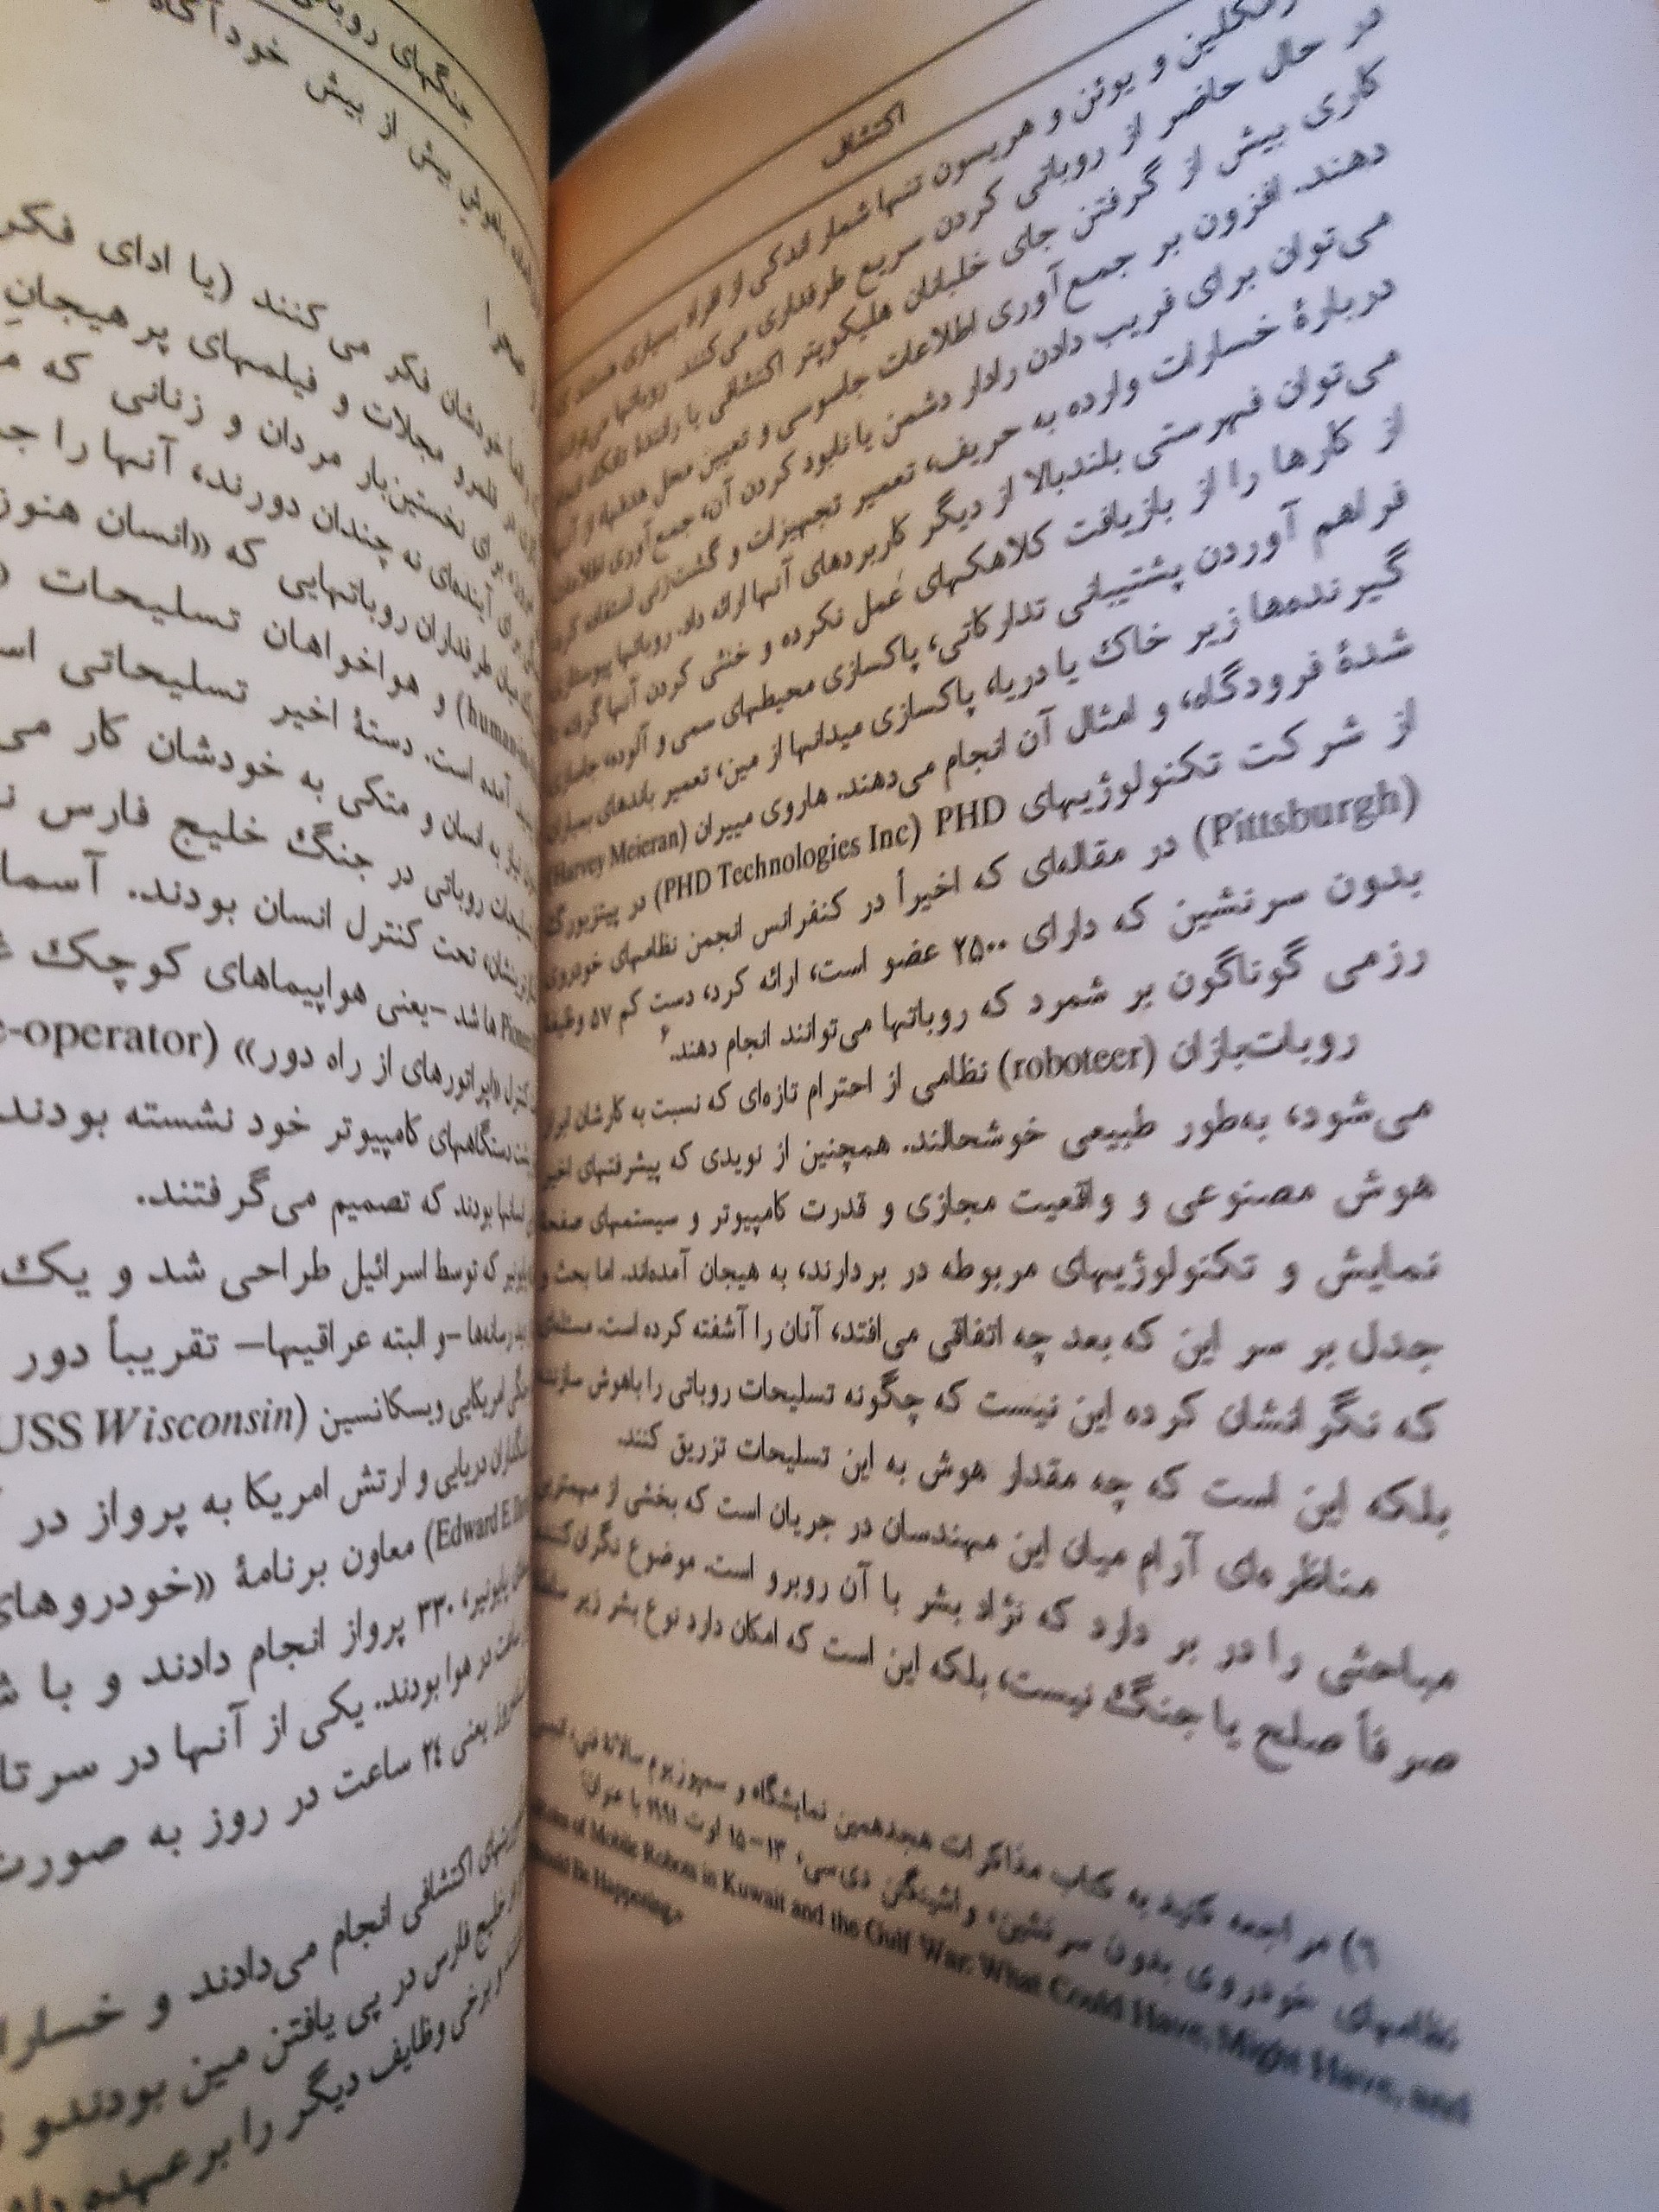 اکتشاف
و یوئن و هریسون تنها شمار اندکی از افراد بسیاری هستند که
در حال حاضر از روباتی کردن سریع طرفداری می‌کنند. روباتها می‌توانند
کاری بیش از گرفتن جای خلبانان هلیکوپتر اکتشافی یا رانندهٔ تانک انجام
دهند. افزون بر جمع‌آوری اطلاعات جاسوسی و تعیین محل هدفها، از آنها
می‌توان برای فریب دادن رادار دشمن یا نابود کردن آن، جمع‌آوری اطلاعات
دربارهٔ خسارات وارده به حریف، تعمیر تجهیزات و گشت‌زنی استفاده کرد.
می‌توان فهرستی بلندبالا از دیگر کاربردهای آنها ارائه داد. روباتها
از کارها را از بازیافت کلاهکهای عمل نکرده و خنثی کردن آنها گرفته تا
فراهم آوردن پشتیبانی تدارکاتی، پاکسازی محیطهای سمی و آلوده، جاسازی
گیرنده‌ها زیر خاک یا دریا، پاکسازی میدانها از مین، تعمیر باندهای بمباران
شدهٔ فرودگاه، و امثال آن انجام می‌دهند. هاروی مییران (Harvey Meieran)
از شرکت تکنولوژیهای PHD (PHD Technologies Inc) در پیتزبورگ
(Pittsburgh) در مقاله‌ای که اخیراً در کنفرانس انجمن نظامهای خودروی
بدون سرنشین که دارای ۲۵۰۰ عضو است، ارائه کرد، دست کم ۵۷ وظیفهٔ
رزمی گوناگون بر شمرد که روباتها می‌توانند انجام دهند.۶
روبات‌بازان (roboteer) نظامی از احترام تازه‌ای که نسبت به کارشان ابراز
می‌شود، به‌طور طبیعی خوشحالند. همچنین از نویدی که پیشرفتهای اخیر
هوش مصنوعی و واقعیت مجازی و قدرت کامپیوتر و سیستمهای صفحهٔ
نمایش و تکنولوژیهای مربوطه در بر دارند، به هیجان آمده‌اند. اما بحث و
جدل بر سر این که بعد چه اتفاقی می‌افتد، آنان را آشفته کرده است. مسئله‌ای
که نگرانشان کرده این نیست که چگونه تسلیحات روباتی را باهوش سازند،
بلکه این است که چه مقدار هوش به این تسلیحات تزریق کنند.
مناظره‌ای آرام میان این مهندسان در جریان است که بخشی از مهمترین
مباحثی را در بر دارد که نژاد بشر با آن روبرو است. موضوع نگران‌کننده
صرفاً صلح یا جنگ نیست، بلکه این است که امکان دارد نوع بشر زیر سلطهٔ
۶) مراجعه کنید به کتاب مذاکرات هجدهمین نمایشگاه و سمپوزیوم سالانهٔ فنی، انجمن
نظامهای خودروی بدون سرنشین، واشینگتن دی‌سی، ۱۳–۱۵ اوت ۱۹۹۱ با عنوان:
of Mobile Robots in Kuwait and the Gulf War: What Could Have, Might Have, and
Be Happening.»
جنگهای
بیش از بیش خودآگاه
صحرا
خودشان فکر می‌کنند (یا ادای فکر
قلمرو مجلات و فیلمهای پر هیجانِ
برای نخستین‌بار مردان و زنانی که
برای آینده‌ای نه چندان دورند، آنها را
میان طرفداران روباتهایی که «انسان هنوز
و هواخواهان تسلیحات
آمده است. دستهٔ اخیر تسلیحاتی
نیاز به انسان و متکی به خودشان کار
تسلیحات روباتی در جنگ خلیج فارس
تحت کنترل انسان بودند. آسما
Pioneerها شد –یعنی هواپیماهای کوچک
کنترل «اپراتورهای از راه دور» (e-operator
پشت دستگاههای کامپیوتر خود نشسته بودند
انسانها بودند که تصمیم می‌گرفتند.
پایونیر که توسط اسرائیل طراحی شد و یک
رسانه‌ها –و البته عراقیها– تقریباً دور
جنگی امریکایی ویسکانسین (USS Wisconsin
تفنگداران دریایی و ارتش امریکا به پرواز در
(Edward E. معاون برنامهٔ «خودروهای
پایونیر، ۳۳۰ پرواز انجام دادند و با
ساعت در هوا بودند. یکی از آنها در سر تا
روز یعنی ۲۴ ساعت در روز به صورت
اکتشافی انجام می‌دادند و
خلیج فارس در پی یافتن مین بودند و
و برخی وظایف دیگر را بر عهده